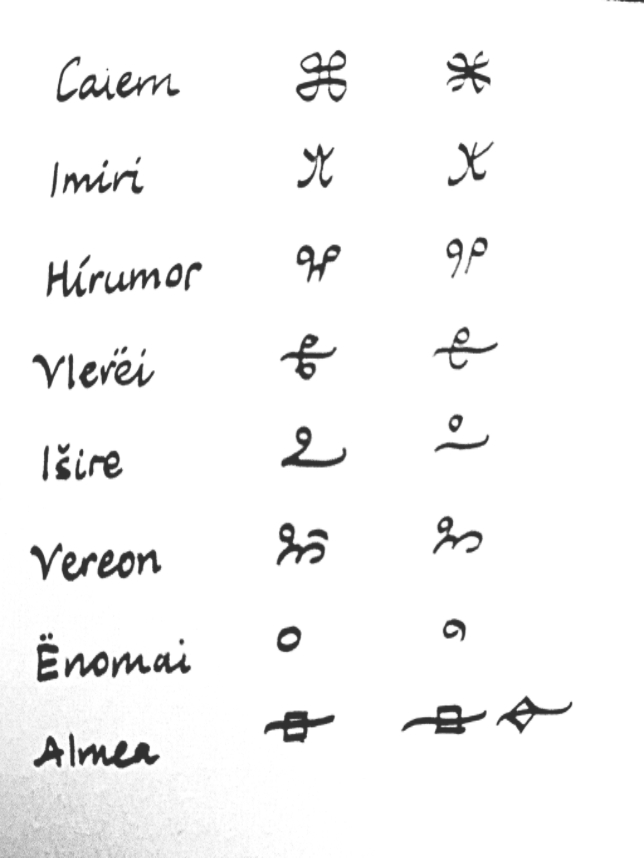 Caiem
Imiri
Hírumor
Vlerëi
Išire
Vereon
Ënomai
Almea